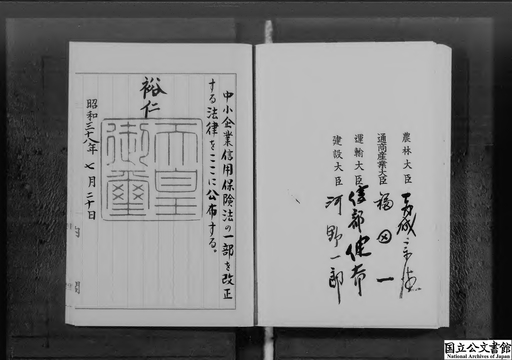 中小企業信用保険法の一部を改正
する法律をここに公布する。
裕仁
天皇
御璽
昭和三十八年七月二十日
内
閣
農林大臣
通商産業大臣 福田一
運輸大臣 綾部健太郎
建設大臣 河野一郎
国立公文書館
National Archives of Japan